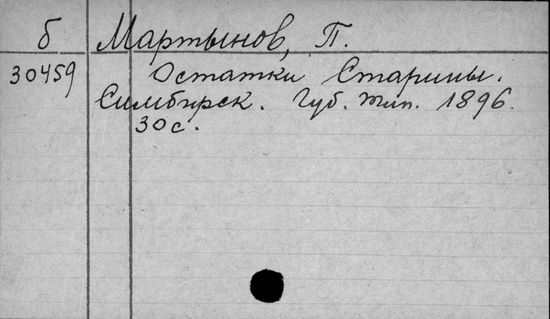 б Мартынов, П.
30459 Остатки Старины.
Симбирск. Губ. тип. 1896.
30 с.